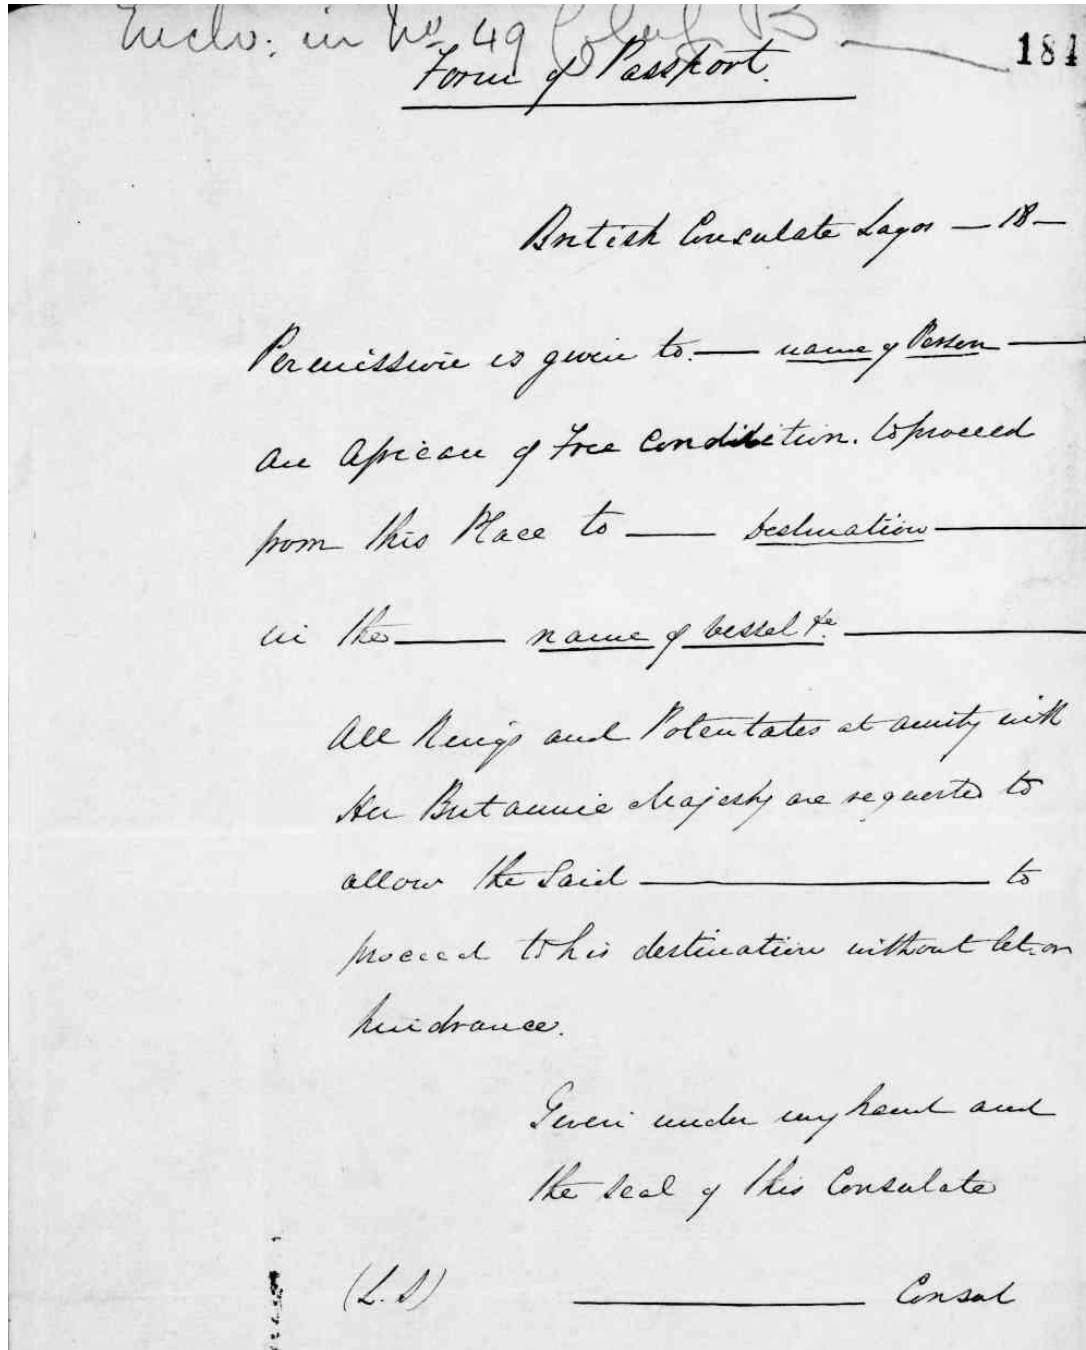 Enclo: in No. 49 B
184
Form of Passport.
British Consulate Lagos — 18 —
Permission is given to. — name of Person —
an African of Free Condition. to proceed
from this Place to — Destination —
in the — name of Vessel &c. —
All Kings and Potentates at amity with
Her Britannic Majesty are requested to
allow the said — to
proceed to his destination without let or
hindrance.
Given under my hand and
the seal of this Consulate
(L.S) — Consul